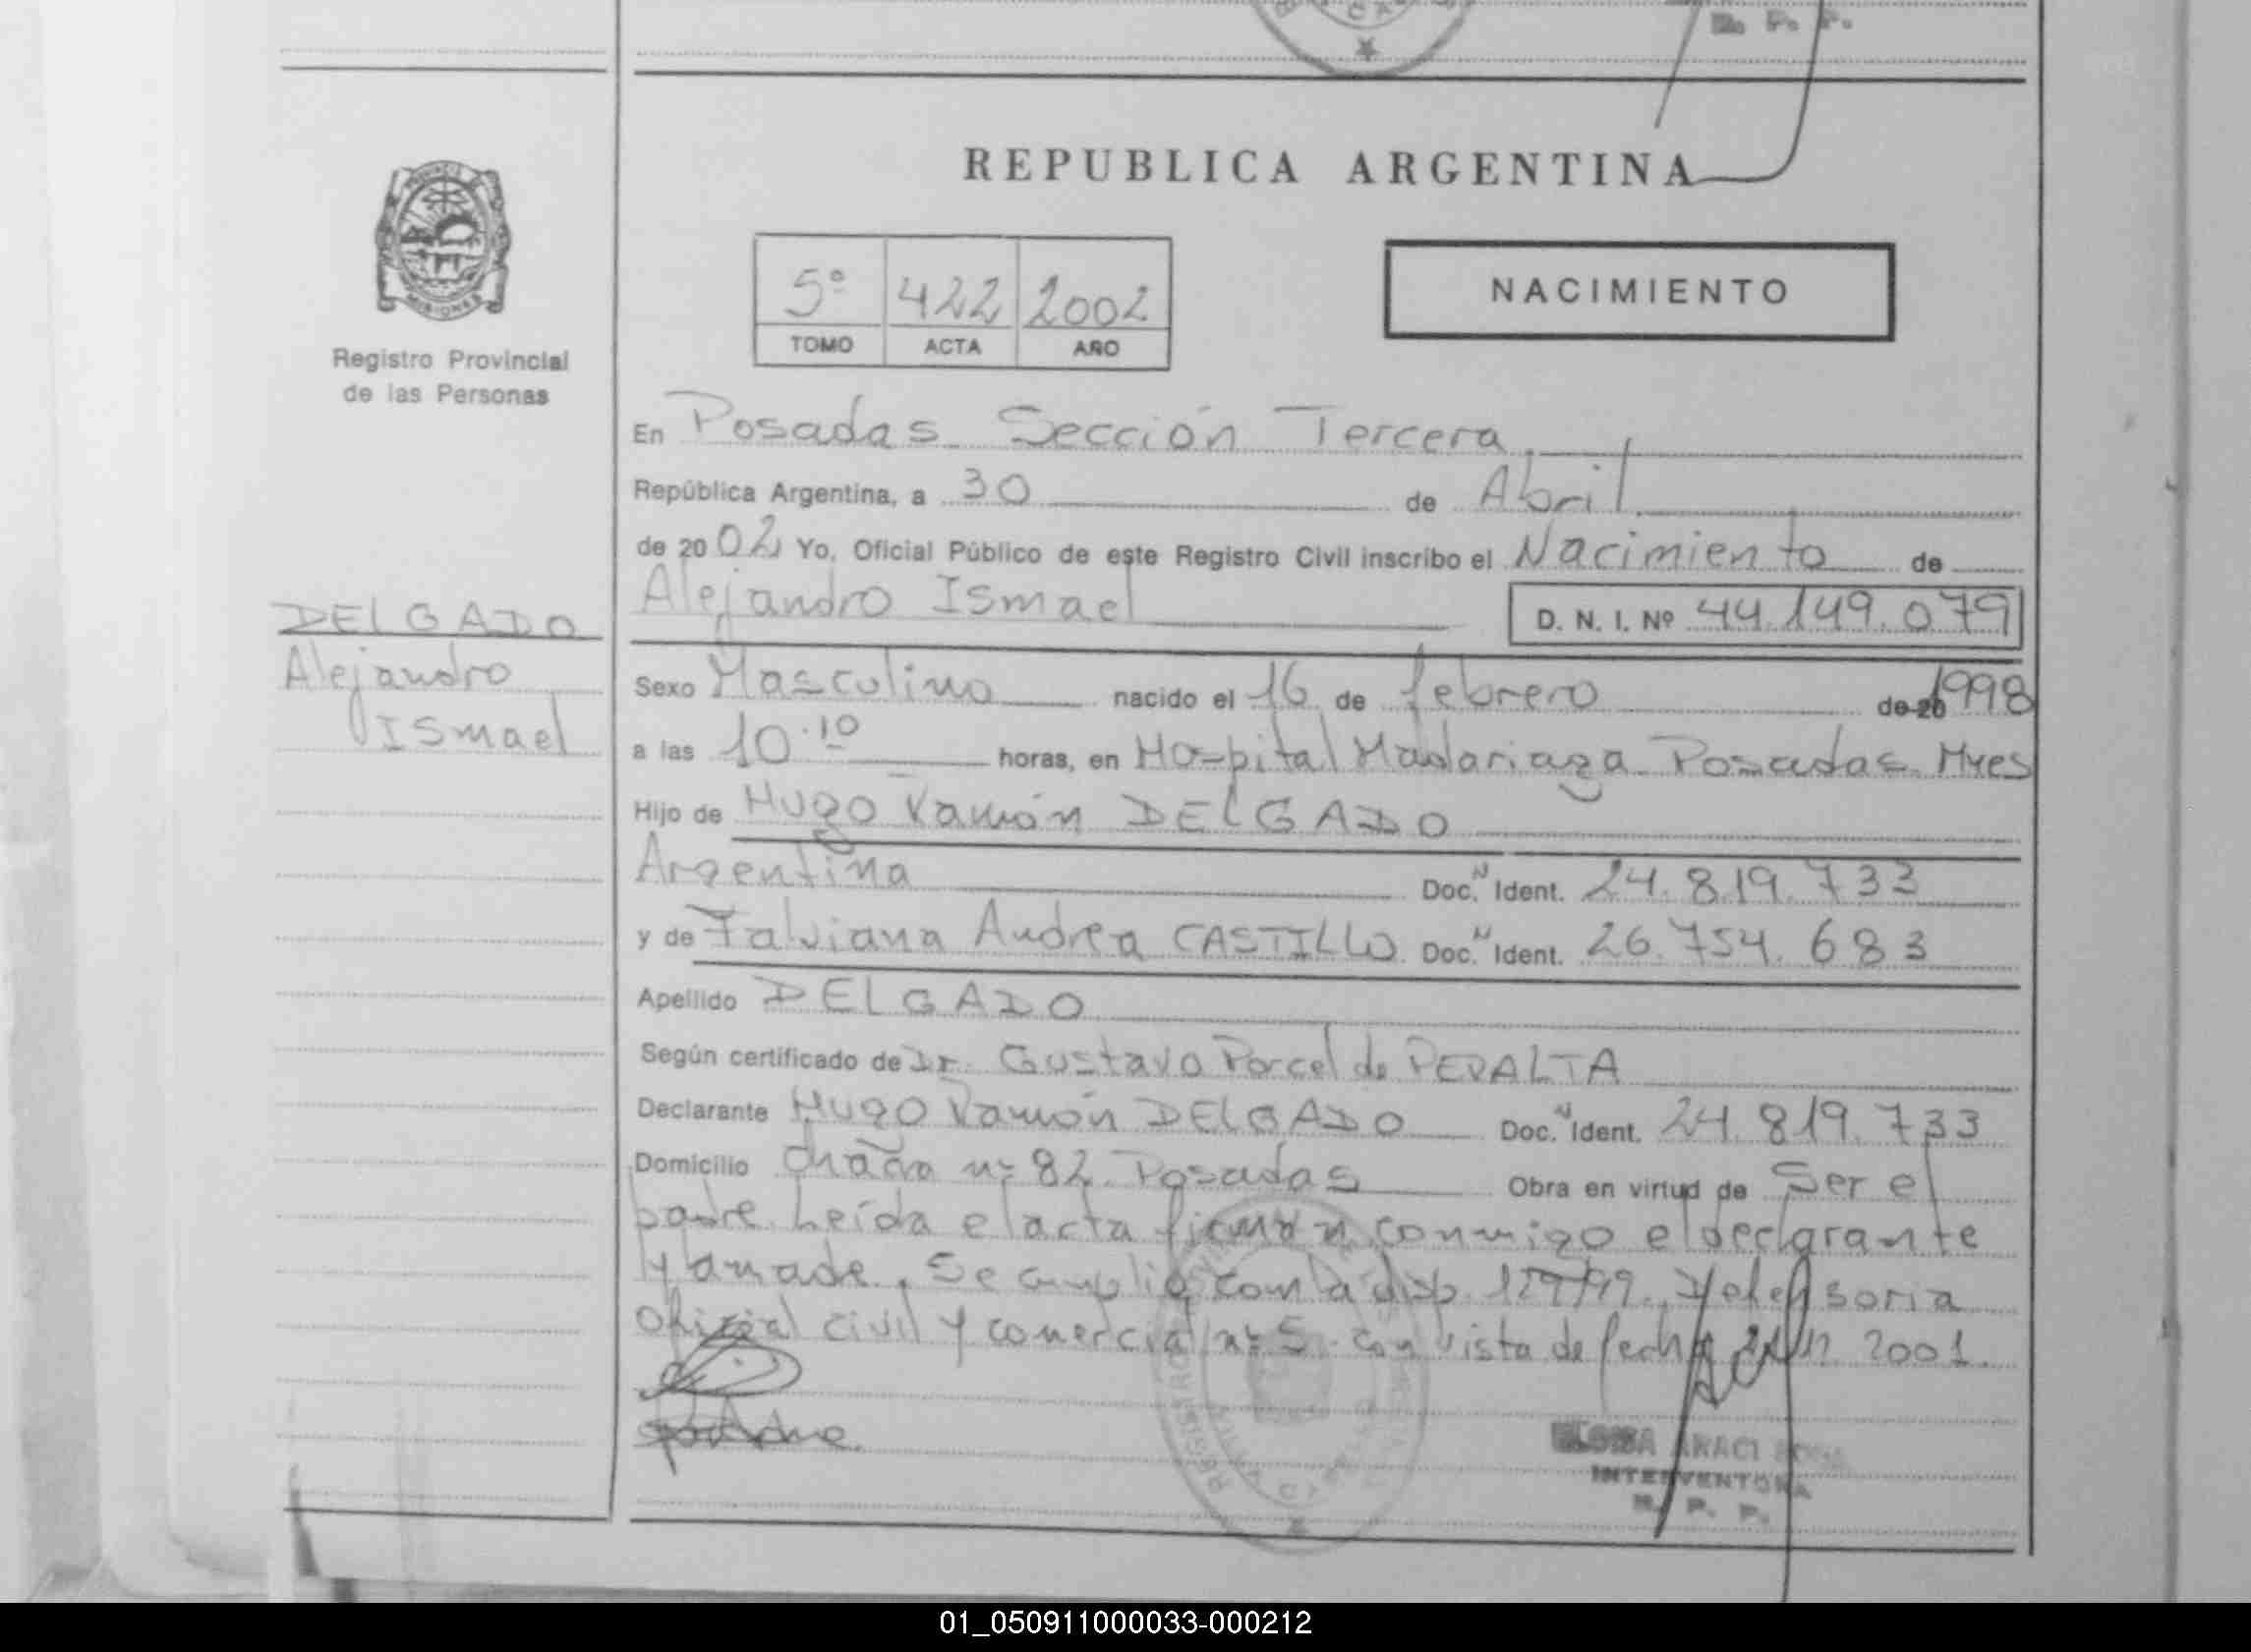 R. P. P.
REPUBLICA ARGENTINA
MISIONES
Registro Provincial
de las Personas
5º 422 2002
TOMO ACTA AÑO
NACIMIENTO
En Posadas Sección Tercera
República Argentina, a 30 de Abril
de 2002 Yo, Oficial Público de este Registro Civil inscribo el Nacimiento de
Alejandro Ismael D. N. I. Nº 44.149.079
DELGADO
Alejandro
Ismael
Sexo Masculino nacido el 16 de febrero de 20 1998
a las 10.10 horas, en Hospital Madariaga Posadas Mnes
Hijo de Hugo Ramón DELGADO
Argentina Doc. N Ident. 24.819.733
y de Fabiana Andrea CASTILLO Doc. N Ident. 26.754.683
Apellido DELGADO
Según certificado de Dr. Gustavo Porcel de PERALTA
Declarante Hugo Ramón DELGADO Doc. N Ident. 24.819.733
Domicilio nº 82 Posadas Obra en virtud de Ser el
padre. Leída el acta firman conmigo el declarante
y madre. Se cumplió con la disp. Defensoria
Oficial civil y comercial nº 5 con vista de fecha 2001.
ARACI
INTERVENTORA
R. P. P.
01_050911000033-000212